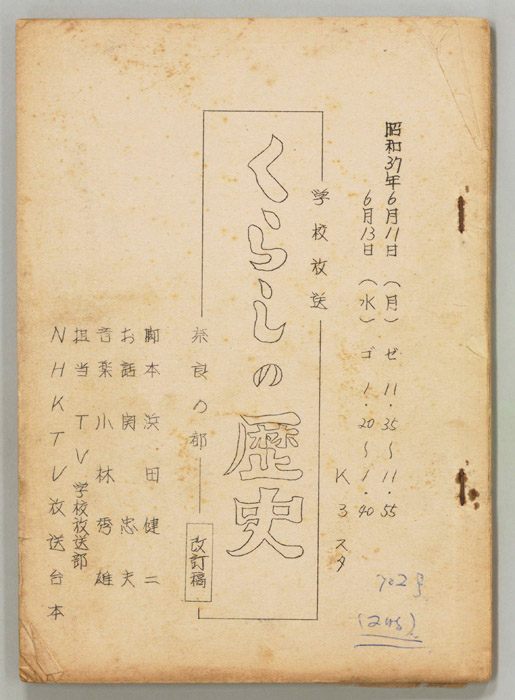 昭和37年6月11日（月）ゼ 11.35〜11.55
6月13日（水）ゴ 1.20〜1.40
K3スタ
学校放送
くらしの歴史
奈良の都
改訂稿
脚本 浜田健二
お話 関忠夫
音楽 小林秀雄
担当 TV学校放送部
NHKTV放送台本
702号